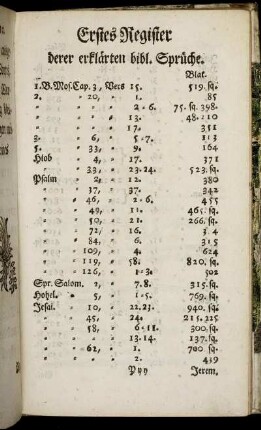 Erstes Register
derer erklärten bibl. Sprüche.
Blat.
1. B. Mos. Cap. 3, Vers 15. 519. sq.
2. " 20, " 1. 85
" " 2-6. 75. sq. 398.
" " 13. 48. 10
" " 17. 351
3. " 6, " 5-7. 113
5. " 33, " 9. 164
Hiob " 4, " 17. 371
" 33, " 23-24. 523. sq.
Psalm " 2, " 12. 380
" 37, " 37. 342
" 46, " 2-6. 455
" 49, " 11. 465. sq.
" 50, " 21. 266. sq.
" 72, " 16. 34
" 84, " 6. 315
" 109, " 4. 624
" 119, " 58. 820. sq.
" 126, " 1-3. 502
Spr. Salom. 2, " 7.8. 315. sq.
Hohel. " 5, " 1-5. 769. sq.
Jesai. " 10, " 22.23. 940. sq.
" 45, " 24. 215. 225
" 58, " 6-11. 300. sq.
" " 13-14. 137. sq.
" 61, " 1. 700. sq.
" " 2. 439
Yyy Jerem.